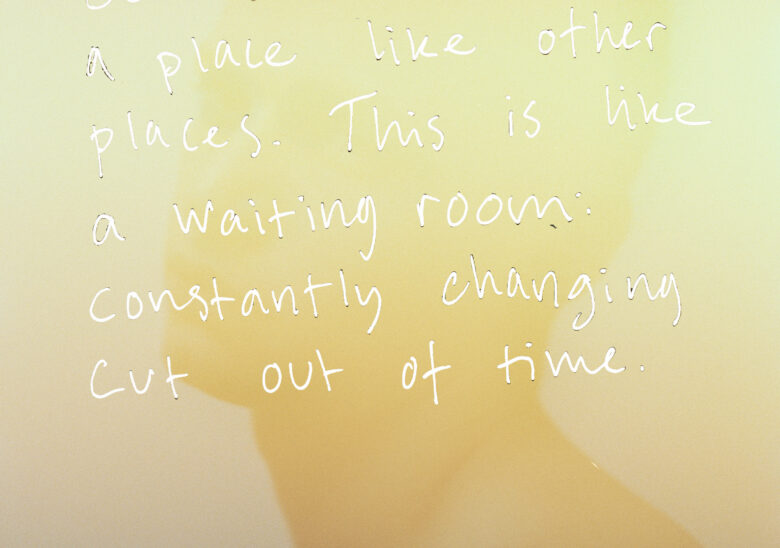 a place like other
places. This is like
a waiting room:
constantly changing
cut out of time.